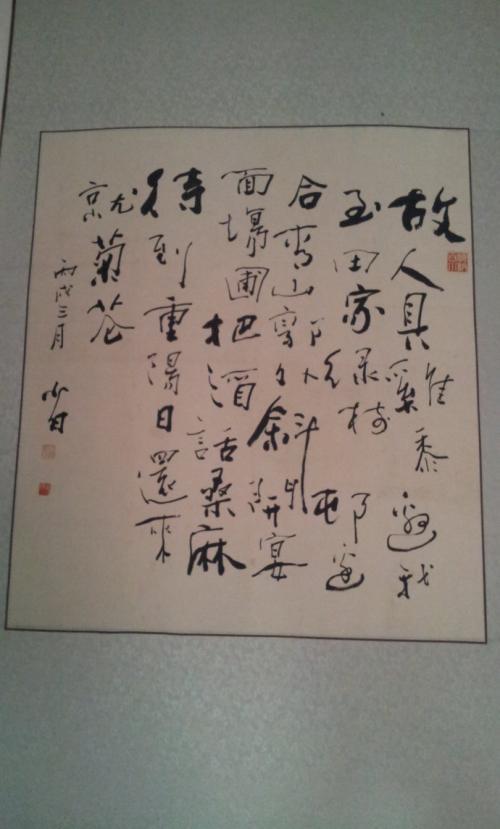 故人具雞黍邀我
至田家绿树邨邊
合青山郭外斜開宴
面場圃把酒話桑麻
待到重陽日還來
就菊花
丙戌三月